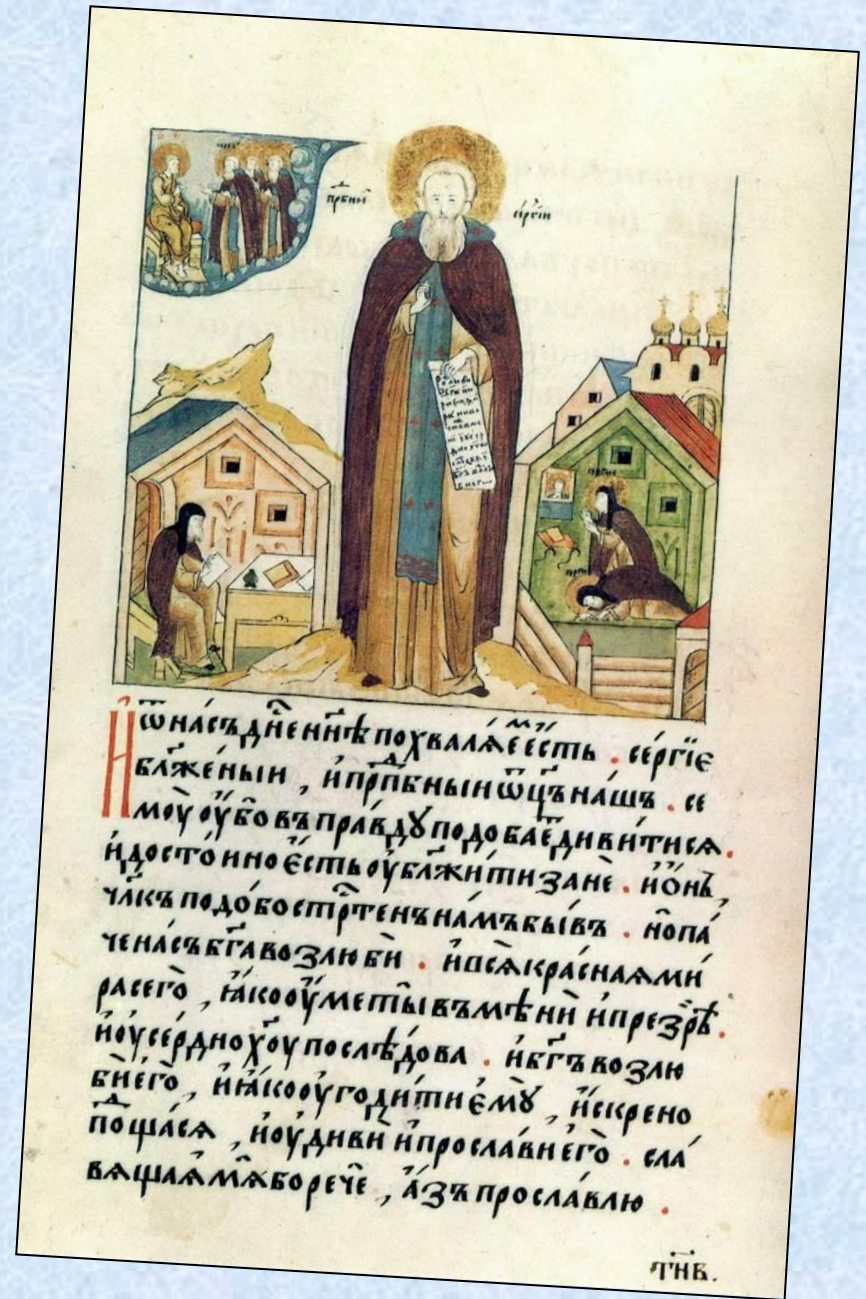 прпⷣбныи
сергїи
Ѿ на́съ дн҃е нн҃ѣ похваля́емъ є҆́сть . се́ргїе
бл҃же́ныи , и҆ прпⷣбныи ѿц҃ъ на́шъ . се
моу̀ оу҆́бо въ пра́вдꙋ подоба́е диви́тися .
и҆ досто́ино є҆́сть оу҆блажи́ти занѐ . и҆ ѻ҆́нъ ,
чл҃къ подо́бострⷭ҇тенъ на́мъ бы́въ . но па́
че на́съ бг҃а возлюбѝ . и҆ вся̀ кра́сная ми́
ра сегѡ̀ , ꙗ҆́ко оу҆ме́ты въмѣнѝ и҆ презрѣ̀ .
и҆ оу҆се́рдно хⷭ҇оу послѣ́дова . и҆ бг҃ъ возлю
бѝ є҆го̀ , и҆ ꙗ҆́ко оу҆годи́ти є҆мꙋ̀ , и҆́скрено
поⷣща́ся , и҆ оу҆дивѝ и҆ просла́ви є҆го̀ . сла́
вящая мя̀ бо рече̾ , а҆́зъ просла́влю .
тн҃в.